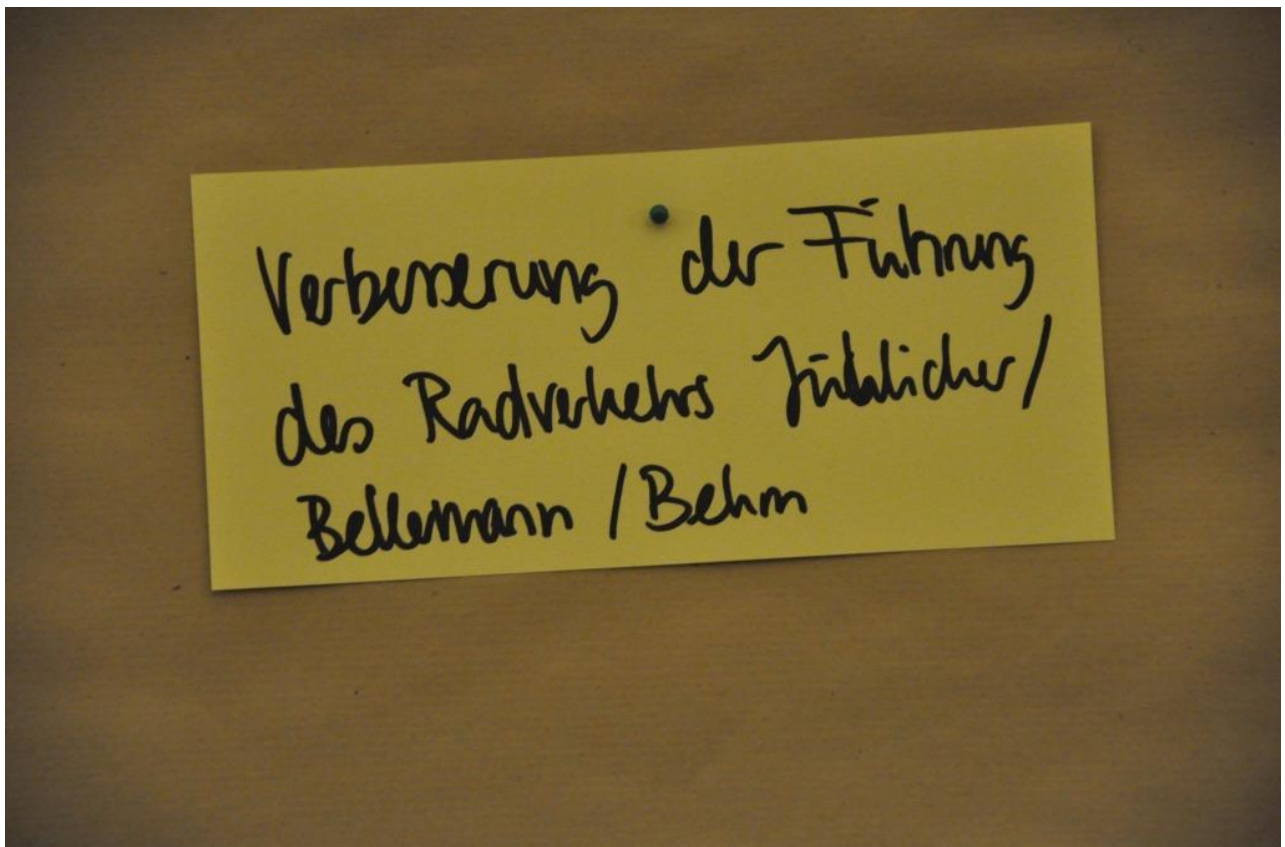 Verbesserung der Führung
des Radverkehrs Jülicher/
Bellermann / Behm